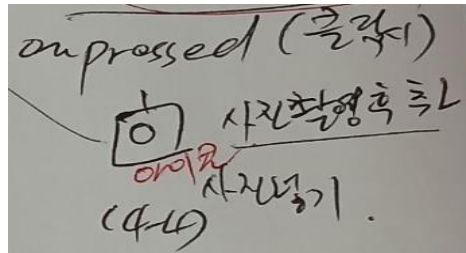 onpressed (클릭시)
사진촬영후 추가
아이콘
사진넣기.
(4-4)